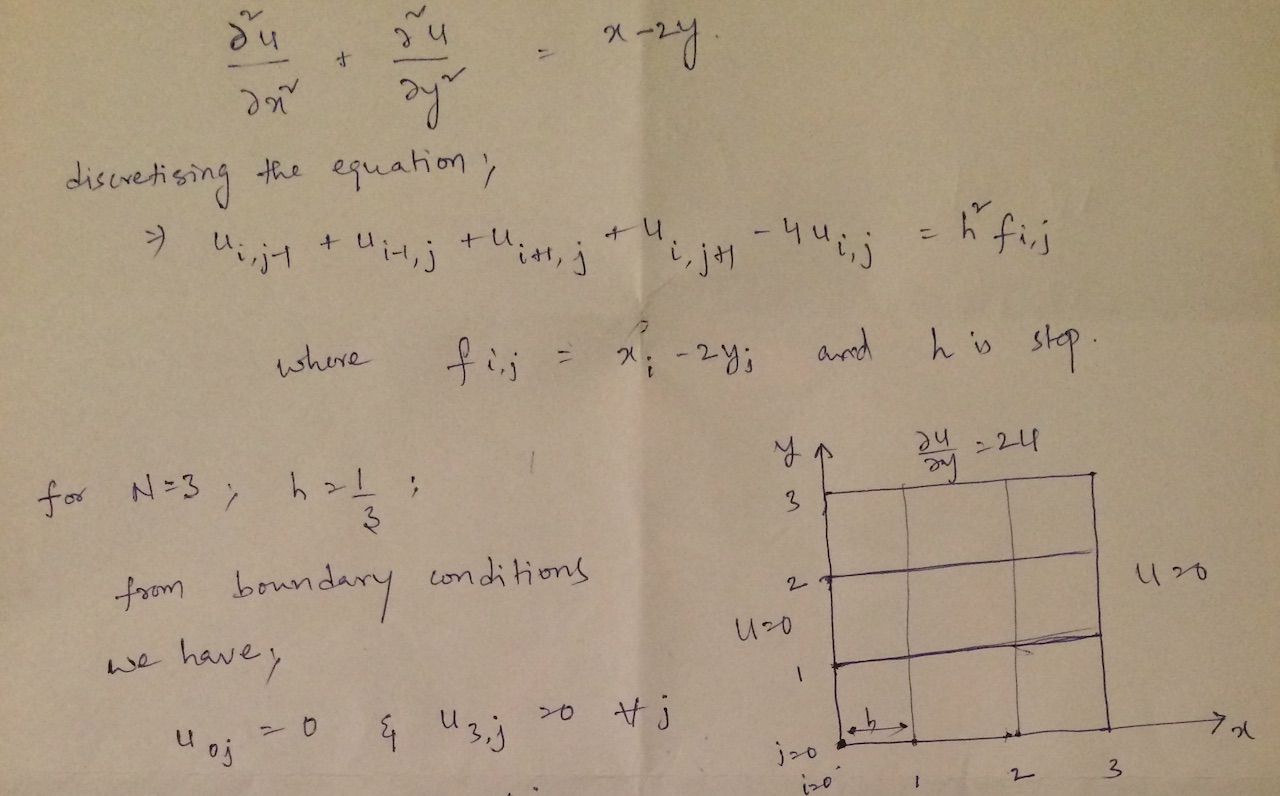 ∂²u/∂x² + ∂²u/∂y² = x-2y.
discretising the equation;
⇒ u_{i,j-1} + u_{i-1,j} + u_{i+1,j} + u_{i,j+1} - 4u_{i,j} = h² f_{i,j}
where f_{i,j} = x_i - 2y_j and h is step.
for N=3 ; h = 1/3 ;
from boundary conditions
we have;
u_{0j} = 0 & u_{3,j} = 0 ∀ j
y
∂u/∂y = 2u
3
2
u=0
u=0
1
h
j=0
x
i=0 1 2 3